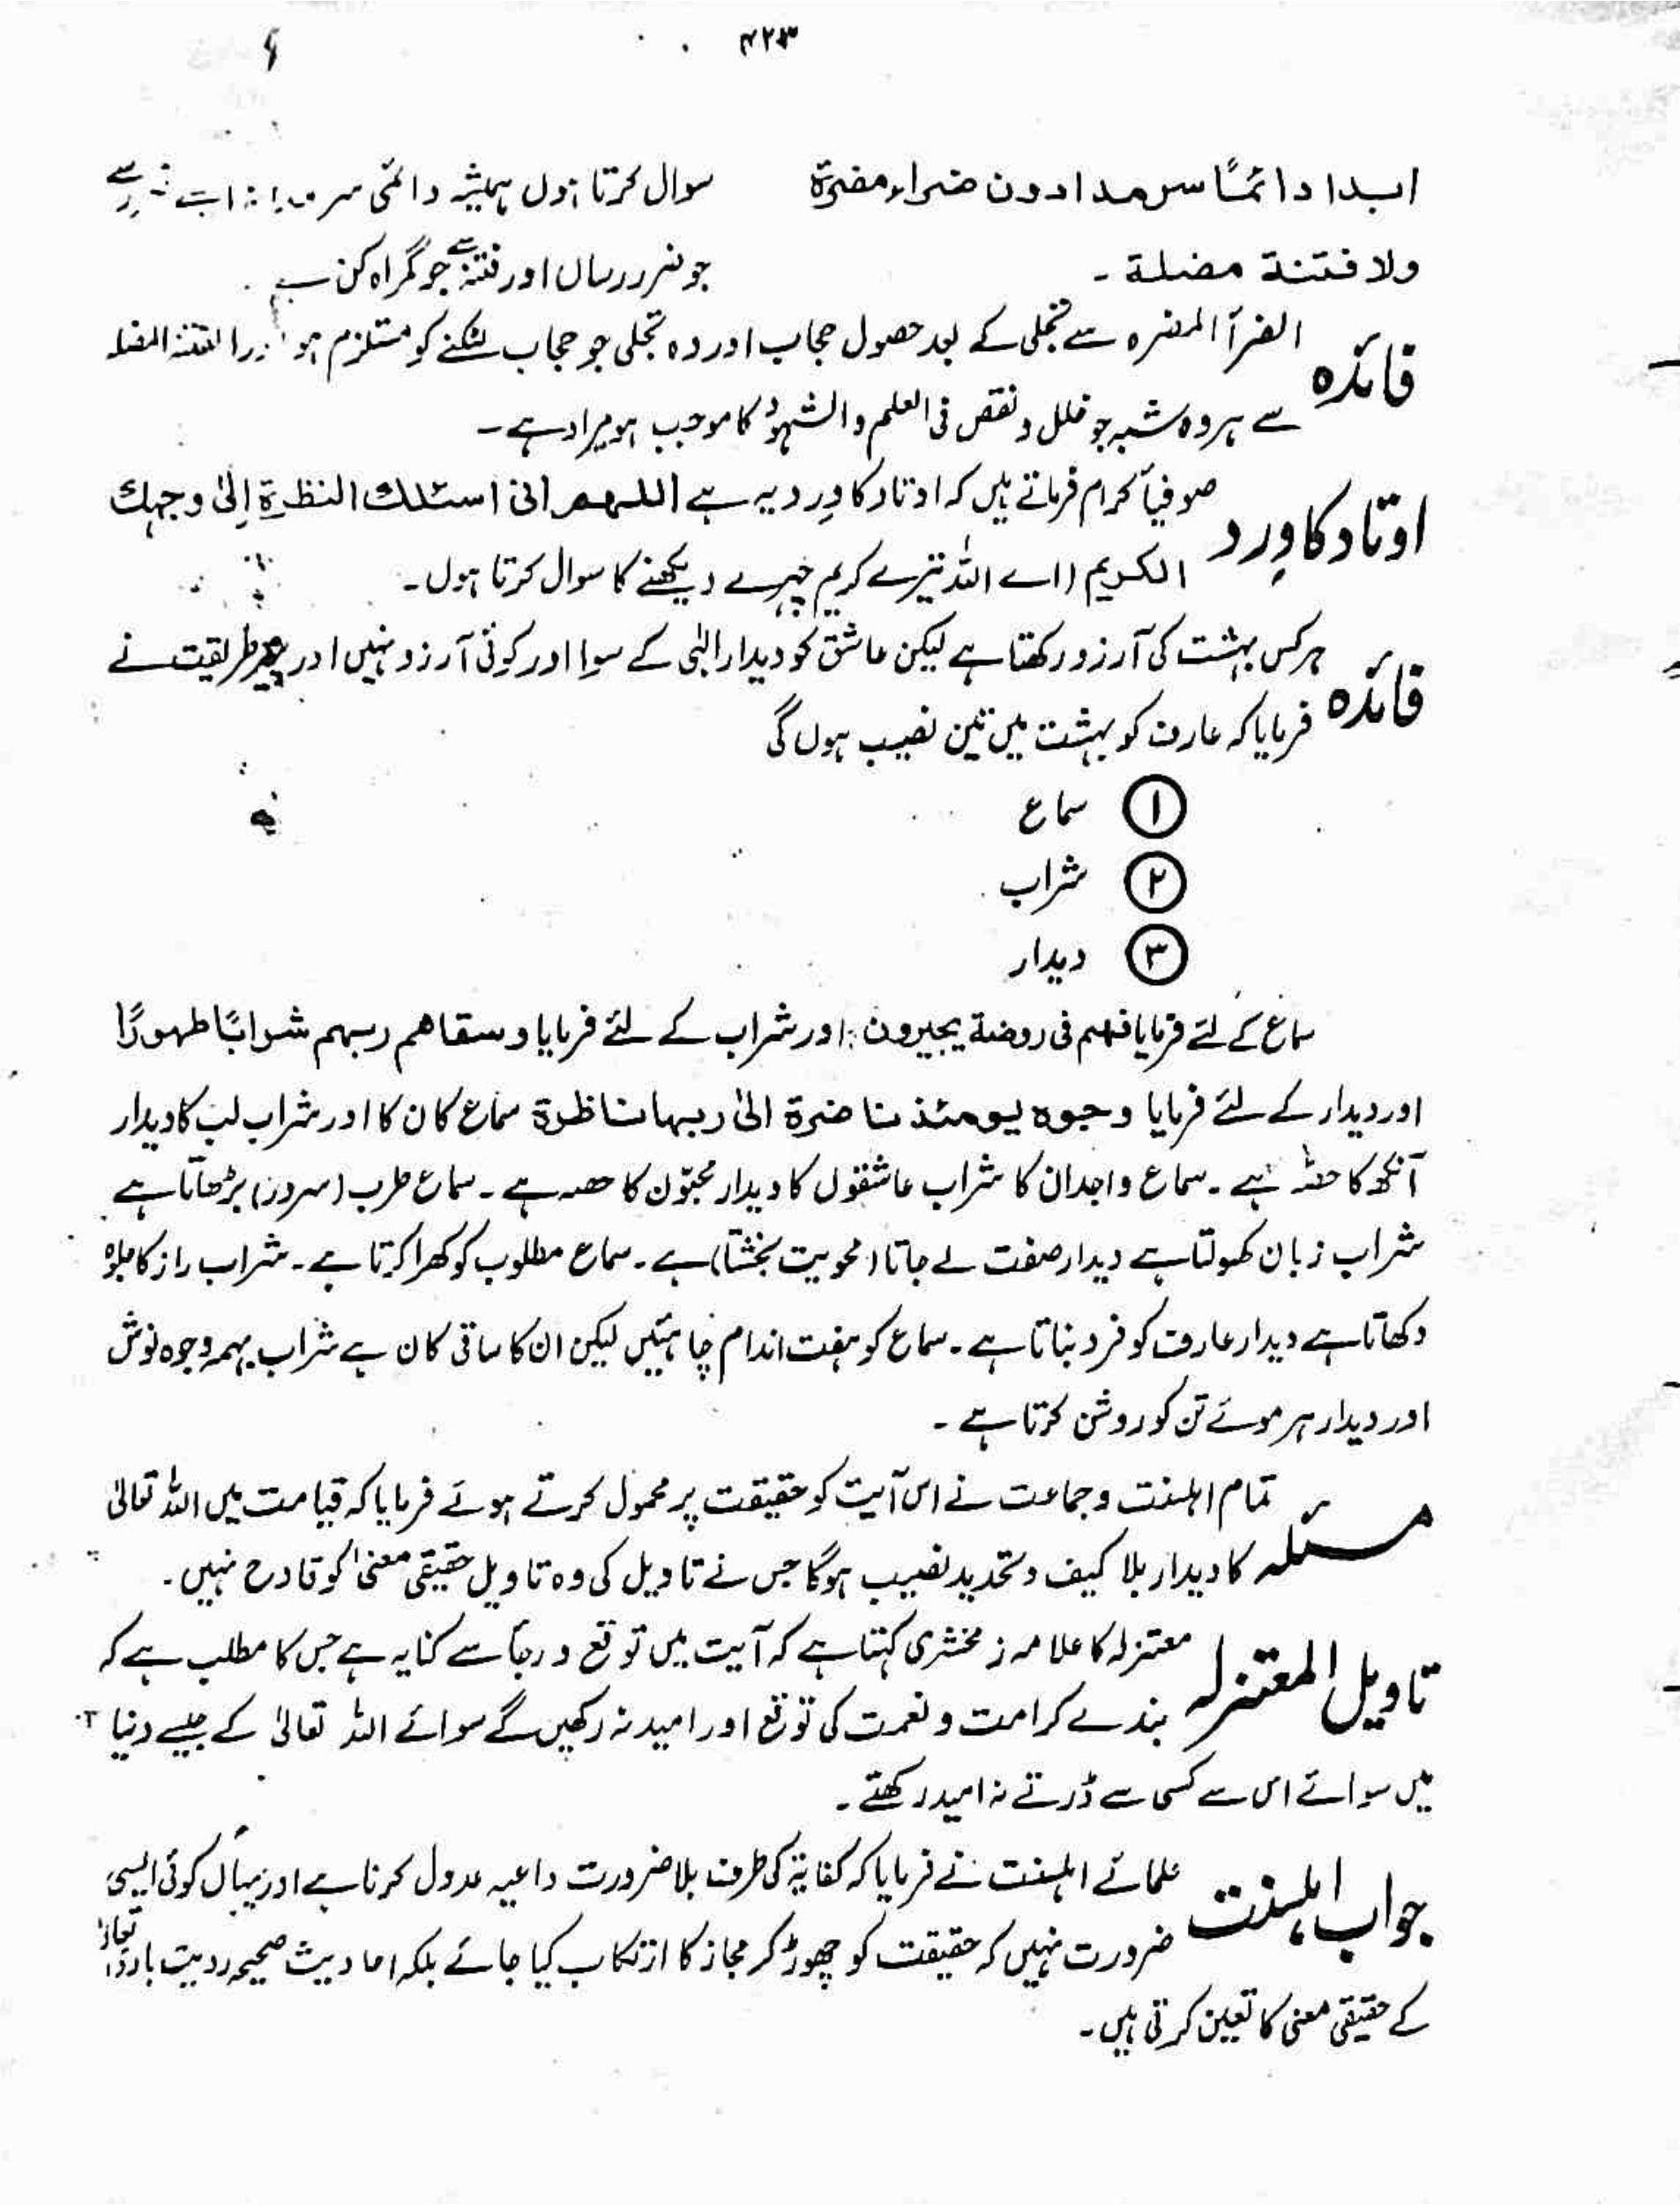 ۴۲۳
ابدا دائمًا سرمدا دون ضراء مضرة سوال کرتا ہوں ہمیشہ دائمی
ولا فتنة مضلة ۔ جو ضرر رساں اور فتنہ سے جو گمراہ کن ہے
فائدہ الضرآ المضرہ سے تجلی کے بعد حصول حجاب اور وہ تجلی جو حجاب لٹکنے کو مستلزم ہو اور الفتنۃ المضلہ
سے ہر وہ شبہ جو خلل و نقص فی العلم والشہود کا موجب ہو مراد ہے ۔
اوتاد کا وِرد صوفیاً کرام فرماتے ہیں کہ اوتاد کا وِرد یہ ہے اللهم انی اسئلك النظرة اِلیٰ وجهك
الکریم (اے اللہ تیرے کریم چہرے دیکھنے کا سوال کرتا ہوں ۔
فائدہ ہر کس بہشت کی آرزو رکھتا ہے لیکن عاشق کو دیدار الٰہی کے سوا اور کوئی آرزو نہیں اور پیر طریقت نے
فرمایا کہ عارف کو بہشت میں تین نصیب ہوں گی
① سماع
② شراب
③ دیدار
سماع کے لئے فرمایا فهم فی روضة یحبرون : اور شراب کے لئے فرمایا وسقاهم ربهم شرابًا طهورًا
اور دیدار کے لئے فرمایا وجوه یومئذ ناضرة الیٰ ربها ناظرة سماع کان کا اور شراب لب کا دیدار
آنکھ کا حصّہ ہے ۔ سماع واجدان کا شراب عاشقوں کا دیدار محبّوں کا حصہ ہے ۔ سماع طرب (سرور) بڑھاتا ہے
شراب زبان کھولتا ہے دیدار صفت لے جاتا (محویت بخشتا) ہے ۔ سماع مطلوب کو کھرا کرتا ہے ۔ شراب راز کا جلوہ
دکھاتا ہے دیدار عارف کو فرد بناتا ہے ۔ سماع کو ہفت اندام چاہئیں لیکن ان کا ساقی کان ہے شراب بہمہ وجوہ نوش
اور دیدار ہر موئے تن کو روشن کرتا ہے ۔
مسئلہ تمام اہلسنت وجماعت نے اس آیت کو حقیقت پر محمول کرتے ہوئے فرمایا کہ قیامت میں اللہ تعالیٰ
کا دیدار بلا کیف وتحدید نصیب ہوگا جس نے تاویل کی وہ تاویل حقیقی معنیٰ کو قادح نہیں ۔
تاویل المعتزلہ معتزلہ کا علامہ زمخشری کہتا ہے کہ آیت میں توقع و رجاً سے کنایہ ہے جس کا مطلب ہے کہ
بندے کرامت و نعمت کی توقع اور امید نہ رکھیں گے سوائے اللہ تعالیٰ کے جیسے دنیا
میں سوائے اس سے کسی سے ڈرتے نہ امید رکھتے ۔
جواب اہلسنت علمائے اہلسنت نے فرمایا کہ کنایۃ کی طرف بلا ضرورت داعیہ عدول کرنا ہے اور یہاں کوئی ایسی
ضرورت نہیں کہ حقیقت کو چھوڑ کر مجاز کا ارتکاب کیا جائے بلکہ احادیث صحیحہ رویت باری تعالیٰ
کے حقیقی معنی کا تعین کرتی ہیں ۔